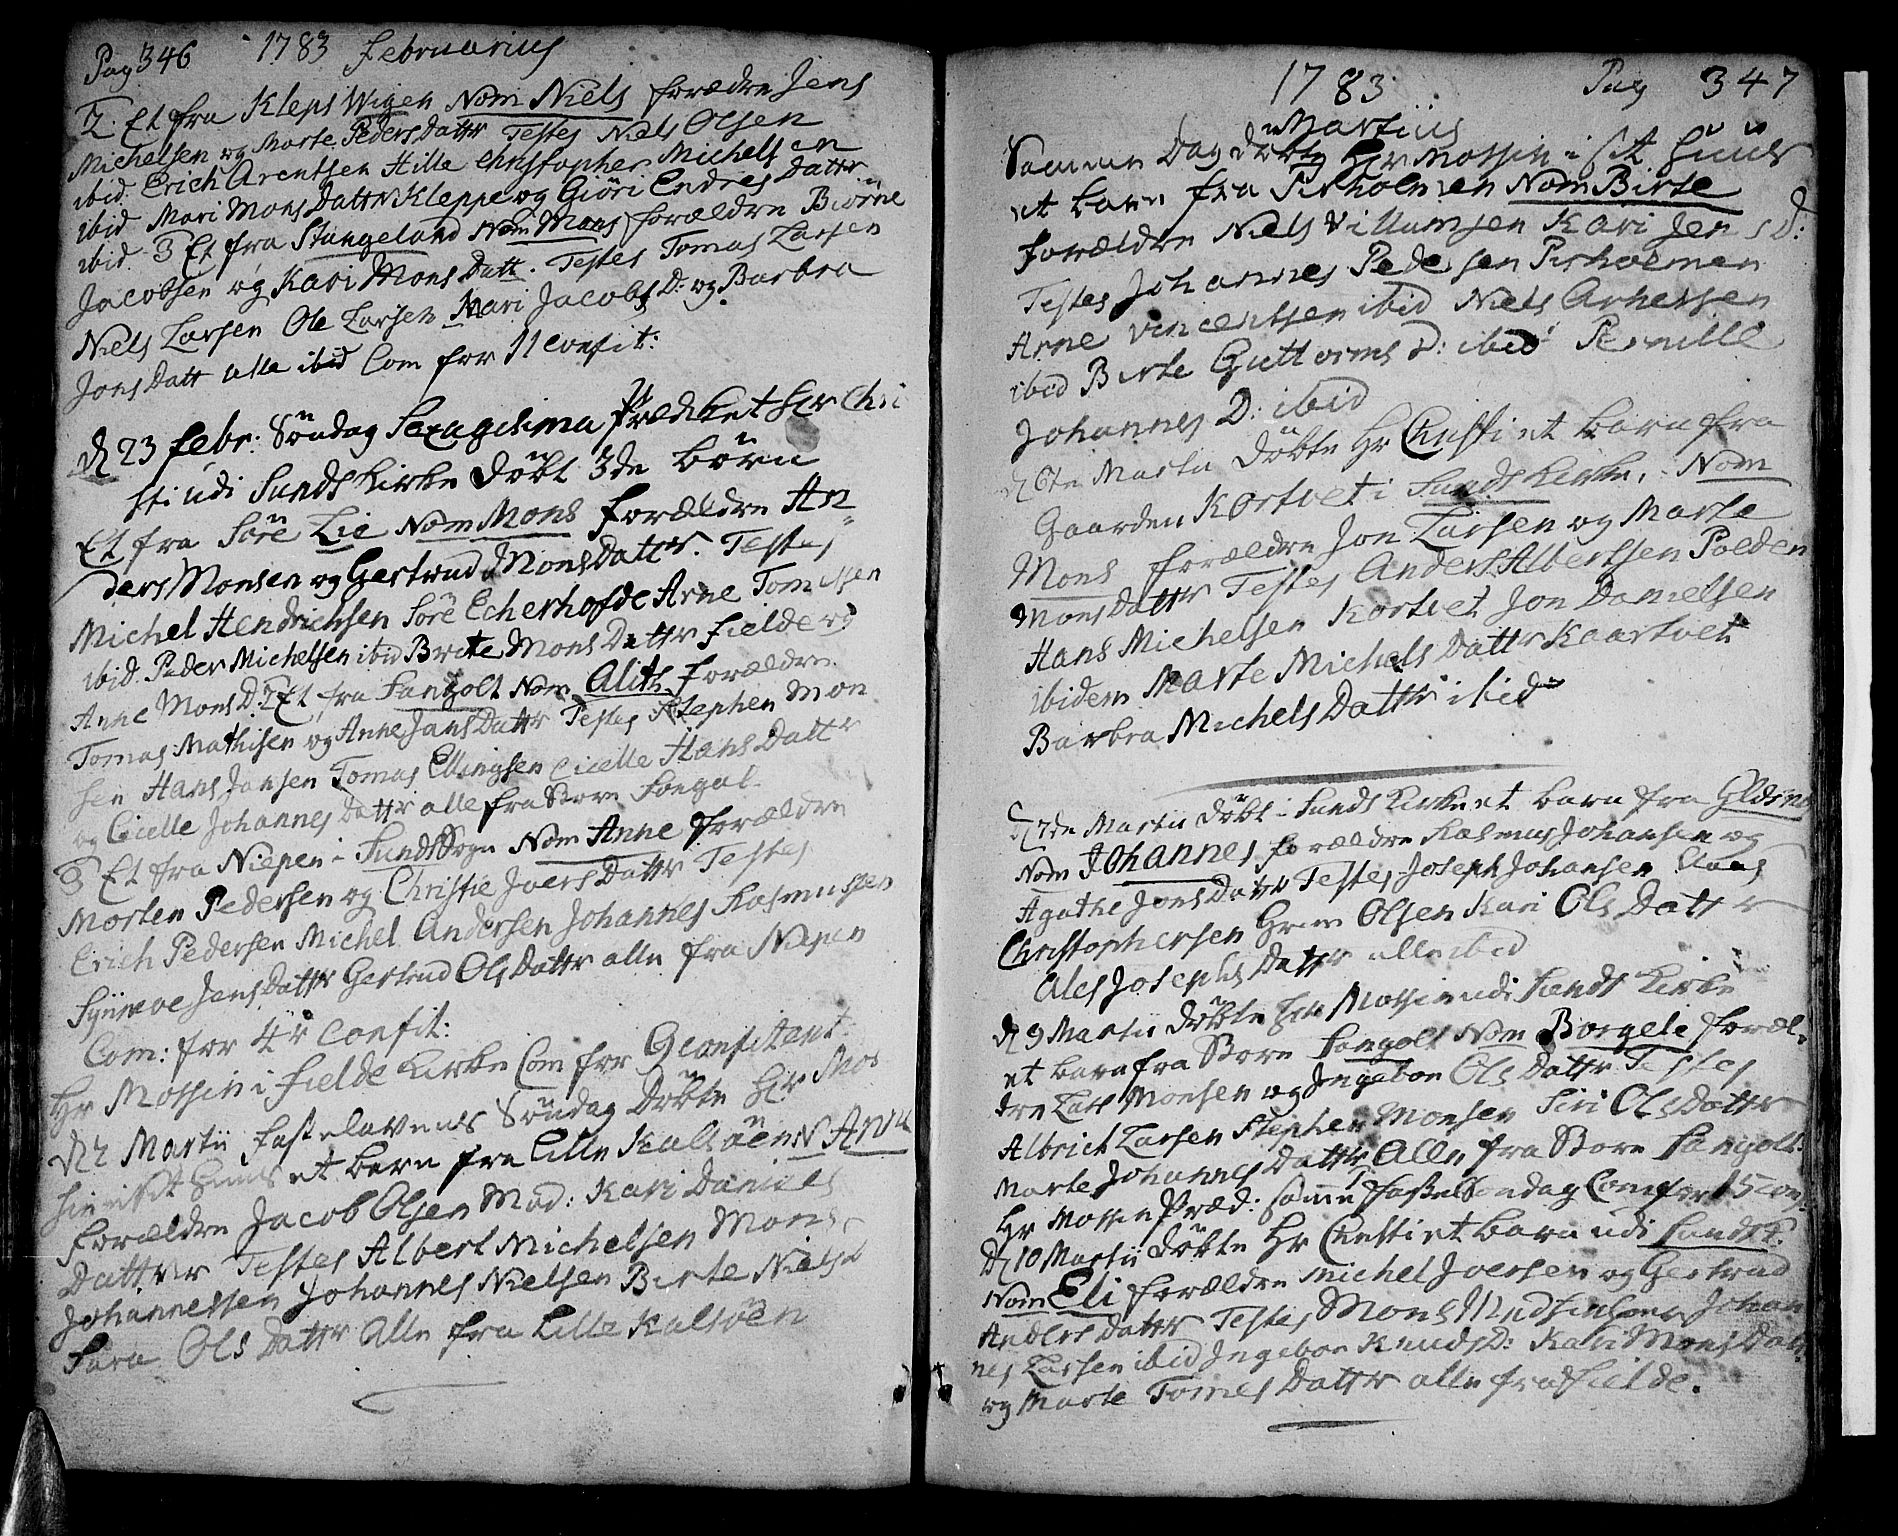 Pag 346 1783 Februarius
2. Et fra Kleps Wigen Nom Niels forældre Jens
Michelsen og Marte Peders Dattr Testes Niels Olsen
ibid Erich Arentsen Hille Christopher Michelsen
ibid Mari Mons Dattr Kleppe og Giöri Endres Dattr
ibid 3 Et fra Stangeland Nom Mons forældre Biörne
Jacobsen og Kari Mons Datt. Testes Tomas Larsen
Niels Larsen Ole Larsen Kari Jacobs D: og Barbra
Jons Datt alle ibid Com for 11 Confit:
d 23 febr: Söndag Sexagesima Prædiket Hr Chri
sti udi Sunds Kirke Döbt 3de börn
Et fra Söre Lie Nom Mons forældre An
ders Monsen og Gertrud Mons Dattr. Testes
Michel Hendrichsen Söre Echerhofde Arne Tomessen
ibid Peder Michelsen ibid Brite Mons Dattr Fielde og
Anne Mons D: 2 Et fra Fangolt Nom Alith forældre
Tomas Mathisen og Anne Jans Dattr Testes Stephen Mon
sen Hans Jansen Tomas Ellingsen Cicelle Hans Dattr
og Cicelle Johannes Dattr alle fra Store Fongol
3 Et fra Niepen i Sunds Sogn Nom Anne forældre
Morten Pedersen og Christie Joers Dattr Testes
Erich Pedersen Michel Andersen Johannes Rasmussen
Synneve Jens Dattr Gertrud Ols Dattr alle fra Niepen
Com: for 4r Confit:
Hr Mossin i Fielde Kirke Com for 9 Confitent
d 2 Martii Fastelavens Söndag Döbte Hr Mos
sin i sit Huus et barn fra Lille Kalsöen N Anne
forældre Jacob Olsen Mad: Kari Daniels
Datter Testes Albert Michelsen Mons
Johannessen Johannes Nielsen Birte Niels D
Sara Ols Dattr Alle fra Lille Kalsöen
1783 Pag 347
Martiis
Samme Dag döbte Hr Mossin i sit Huus
et barn fra Pirholmen Nom Birte
forældre Niels Villumsen Kari Jens D:
Testes Johannes Pedersen Pirholmen
Arne Vincentsen ibid Niels Arnessen
ibid Birte Guttorms D: ibid Pernille
Johannes D: ibid
d 6te Martii Döbte Hr Christi et barn fra
Gaarden Kortvet i Sunds Kirke, Nom
Mons forældre Jon Larsen og Marte
Mons Dattr Testes Anders Albertsen Polden
Hans Michelsen Kortvet Jon Danielsen
ibidem Marte Michels Dattr Kaartvet
Barbra Michels Dattr ibid
d 7de Martii Döbt i Sunds Kirke et barn fra
Nom Johannes forældre Rasmus Johansen og
Agathe Jons Dattr Testes Joseph Johansen Claas
Christophersen Grim Olsen Kari Ols Dattr
Ales Josephs Dattr alle ibid
d 9 Martii Döbte Hr Mossin udi Sunds Kirke
et barn fra Store Fangolt Nom Borgele foræl-
dre Lars Monsen og Ingebor Ols Dattr Testes
Albrict Larsen Stephen Monsen Siri Ols Dattr
Marte Johannes Dattr Alle fra Store Fangolt.
Hr Mossin Præd: samme Fastel Söndag Com for 15 Conf
D 10 Martii Döbte Hr Christi et barn udi Sunds K:
Nom Eli forældre Michel Joersen og Gertrud
Anders Dattr Testes Mons Johan
nes Larsen ibid Ingebor Knuds D: Kari Mons Datt.
og Marte Tomes Dattr alle fra Fielde.